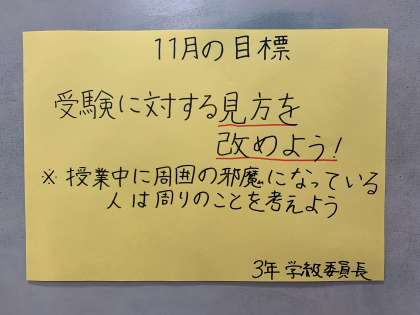 11月の目標
受験に対する見方を
改めよう!
※授業中に周囲の邪魔になっている
人は周りのことを考えよう
3年 学級委員長